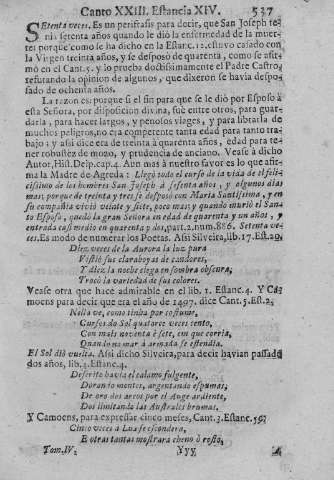 Canto XXIII. Estancia XIV. 537
SEtenta veces. Es un perifrasis para decir, que San Joseph te-
nia setenta años quando le dió la enfermedad de la muer-
te: porque como se ha dicho en la Estanc. 12. estuvo casado con
la Virgen treinta años, y se desposó de quarenta, como se afir-
mó en el Cant. 5. y lo prueba doctissimamente el Padre Castro,
refutando la opinion de algunos, que dixeron se havia despo-
sado de ochenta años.
La razon es: porque si el fin para que se le dió por Esposo à
esta Señora, por disposicion divina, fue entre otros, para guar-
darla, para hacer largos, y penosos viages, y para librarla de
muchos peligros, no era competente tanta edad para tanto traba-
jo: y assi dice era de treinta à quarenta años, edad para te-
ner robuslèz de mozo, y prudencia de anciano. Vease à dicho
Autor, Hist. Deip. cap. 4. Aun mas à nuestro favor es lo que afir-
ma la Madre de Agreda: Llegó todo el curso de la vida de el feli-
cissimo de los hombres San Joseph à sesenta años, y algunos dias
mas; porque de treinta y tres se desposó con Maria Santissima, y en
su compañia vivió veinte y siete, poco mas; y quando murió el San-
to Esposo, quedó la gran Señora en edad de quarenta y un años, y
entrada casi medio en quarenta y dos, part. 2. num. 886. Setenta ve-
ces. Es modo de numerar los Poetas. Assi Silveira, lib. 17. Est. 29.
Diez veces de la Aurora la luz pura
Vistió sus claraboyas de candores,
Y diez la noche ciega en sombra obscura,
Trocó la variedad de sus colores.
Vease otra que hace admirable en el lib. 1. Estanc. 4. Y Ca-
moens para decir que era el año de 1497. dice Cant. 5. Est. 2.
Nella vè, como tinha por costume,
Cursos do Sol quatorce veces cento,
Con mais noventa è sete, em que corria,
Quando no mar à armada se estendia.
El Sol dió vuelta. Assi dicho Silveira, para decir havian passado
dos años, lib. 4. Estanc. 4.
Descrito havia el calamo fulgente,
Dorando montes, argentando espumas;
De oro dos arcos por el Auge ardiente,
Dos limitando las Australes brumas.
Y Camoens, para expressar cinco meses, Cant. 3. Estanc. 59.
Cinco veces à Lua se escondera,
E otras tantas mostrara cheno ò rosto,
Tom. IV. Yyy A